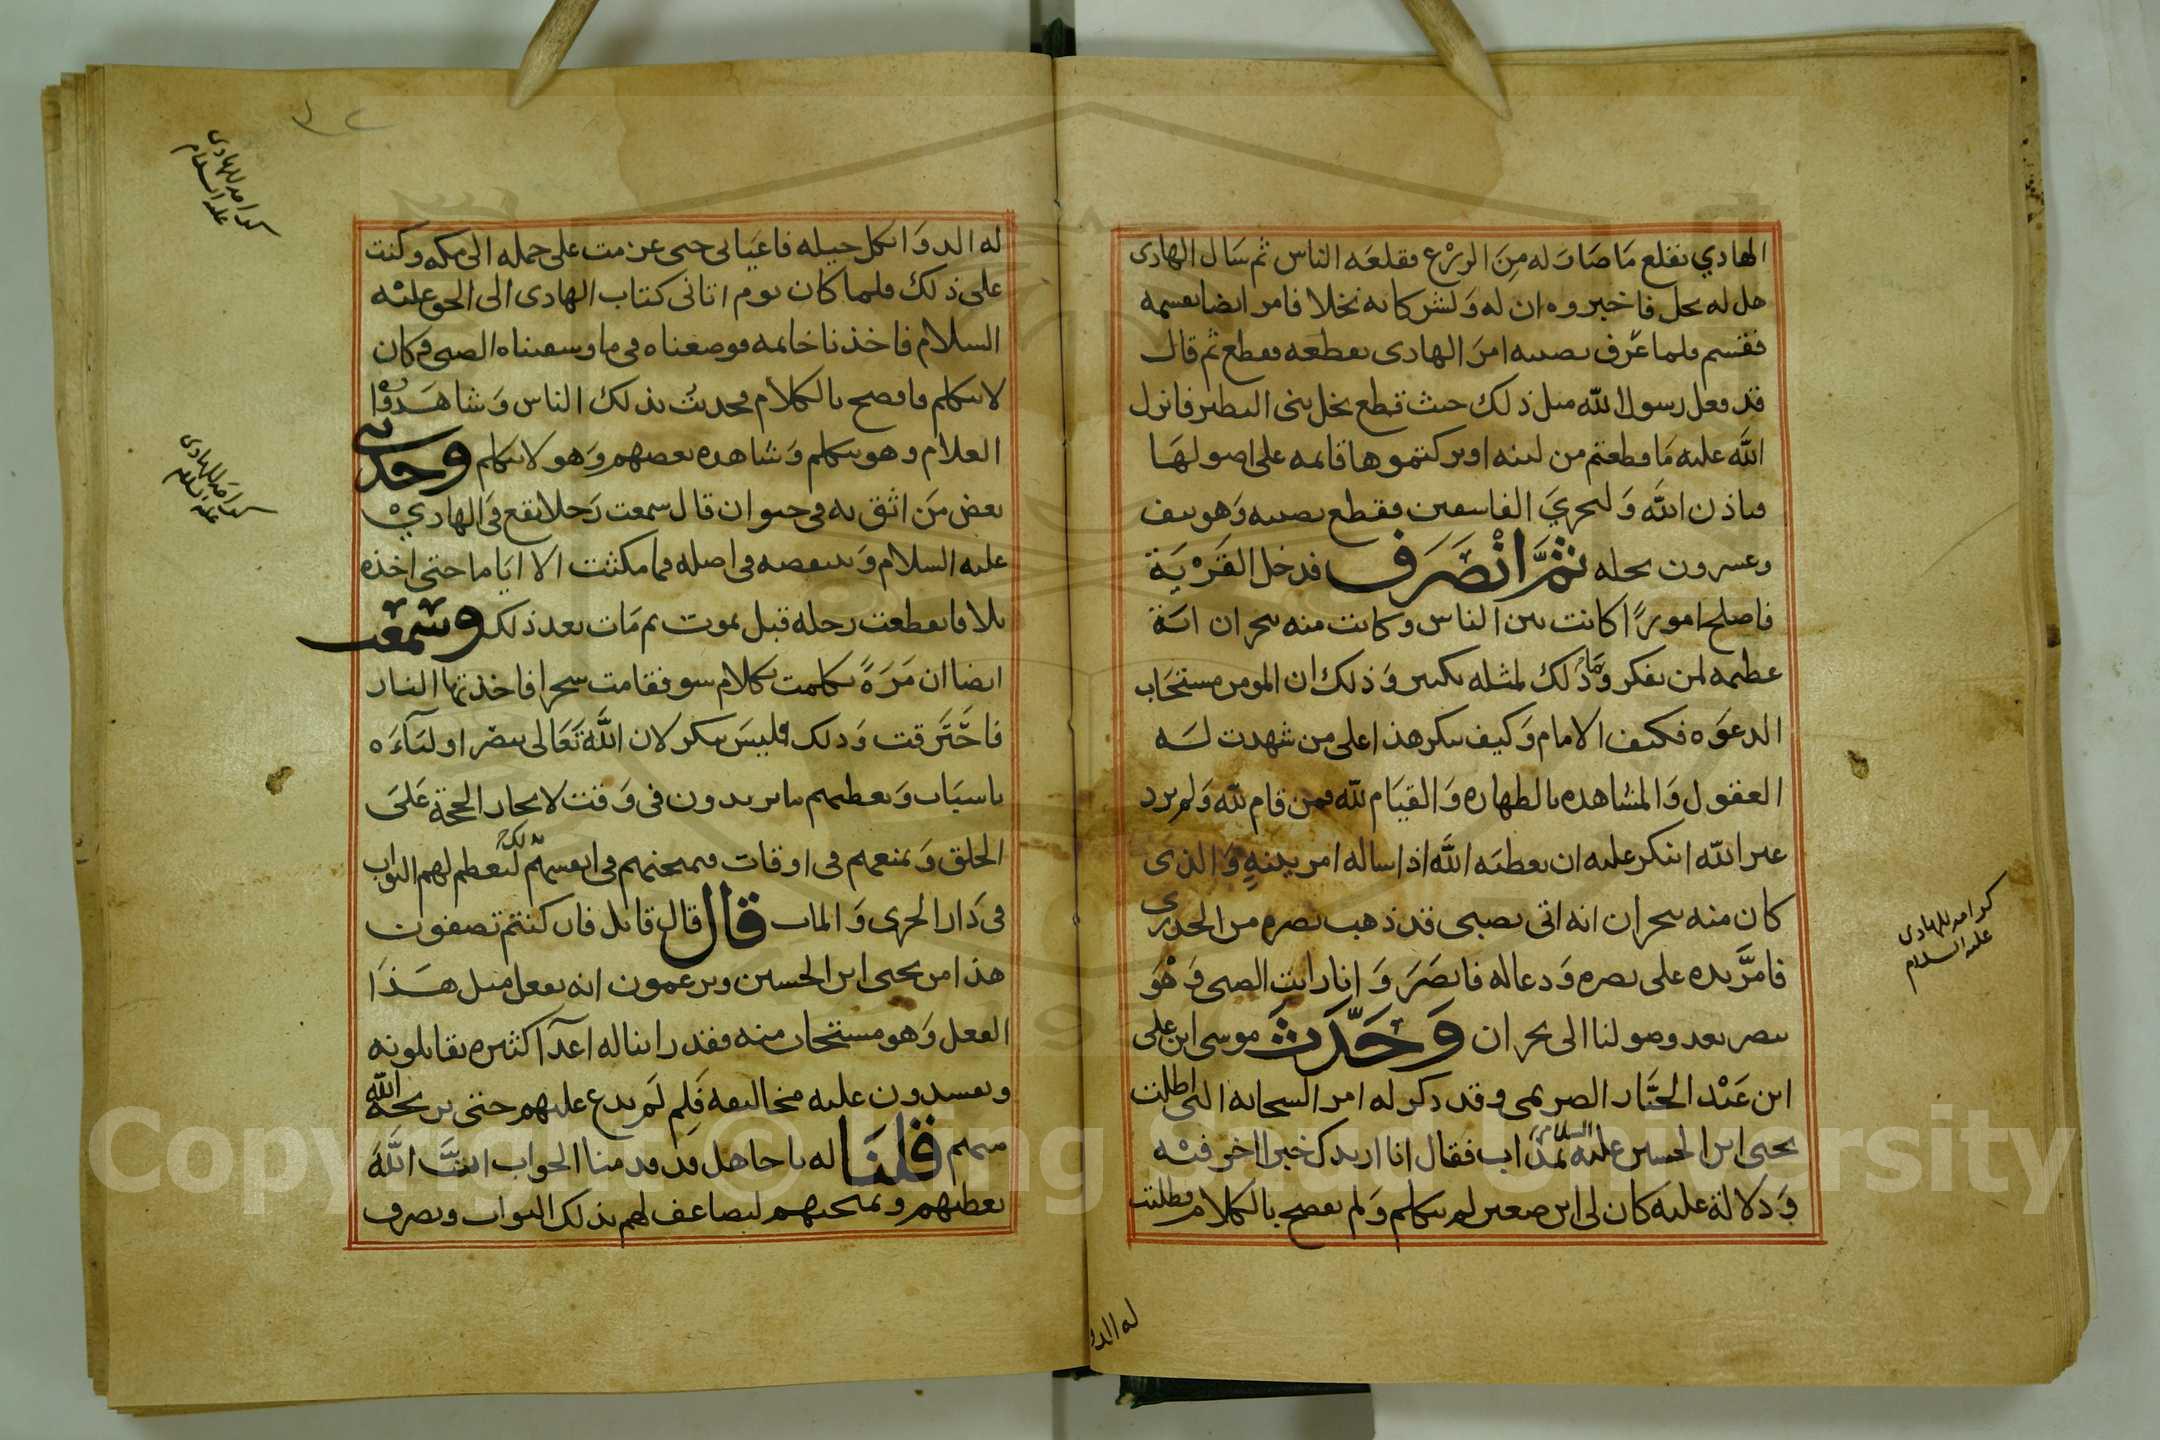 الهادي بقلع ما صار له من الزرع فقلعه الناس ثم سال الهادى
هل له نخل فاخبروه ان له ولشركائه نخلا فامر ايضا بقسمه
فقسم فلما عرف نصيبه امر الهادى بقطعه فقطع ثم قال
قد فعل رسول الله مثل ذلك حيث قطع نخل بنى النظير فانزل
الله عليه ما قطعتم من لينه او تركتموها قائمه على اصولها
فباذن الله وليخزي الفاسقين فقطع نصيبه وهو نيف
وعشرون نخله ثم انصرف فدخل القرية
فاصلح امورًا كانت بين الناس وكانت منه بنجران اية
عظيمه لمن يفكر وما ذلك لمثله بكبير وذلك ان المومن مستجاب
الدعوه فكيف الامام وكيف ينكر هذا على من شهدت له
العقول والمشاهده بالطهاره والقيام لله فمن قام لله ولم يرد
غير الله اينكر عليه ان يعطيه الله اذا ساله امر بدينه والذى
كان منه بنجران انه اتى بصبى قد ذهب بصره من الجدرى
فامر يده على بصره ودعا له فابصر وانا رايت الصبى وهو
يبصر بعد وصولنا الى نجران وحدث موسى ابن على
ابن عبد الجبار الصريمى وقد ذكر له امر السحابه التى اظلت
يحيى ابن الحسين عليه السلام فقال انا ازيدك خبرا اخر فيه
ودلالة عليه كان لى ابن صغير لم يتكلم ولم يفصح بالكلام فطلبت
له الدو
كرامه للهادى
عليه السلام
له الدوا بكل حيله فاعيانى حتى عزمت على حمله الى مكه وكنت
على ذلك فلما كان يوم اتانى كتاب الهادى الى الحق عليه
السلام فاخذنا خاتمه فوضعناه فى ما وسقيناه الصبى وكان
لا يتكلم فافصح بالكلام فحدث بذلك الناس وشاهدوا
الغلام وهو يتكلم وشاهده بعضهم وهو لا يتكلم وحدثنى
بعض من اثق به فى حيوان قال سمعت رجلا يقع فى الهادي
عليه السلام وينتقصه فى اصله فما مكثت الا اياما حتى اخذه
بلا فانقطعت رجله قبل يموت ثم مات بعد ذلك وسمعت
ايضا ان مرة تكلمت بكلام سو فقامت سحرا فاخذتها النار
فاحترقت وذلك فليس ينكر لان الله تعالى ينصر اولياءه
باسباب ويعطيهم ما يريدون فى وقت لايجاد الحجة على
الخلق ويمنعهم فى اوقات فيمتحنهم فى انفسهم لكى ليعظم لهم الثواب
فى دار الجزى والماب قال قال قائل فان كنتم تصفون
هذا من يحيى ابن الحسين وتزعمون انه يفعل مثل هذا
الفعل وهو مستجاب منه فقد راينا له اعدا كثيره يقاتلونه
ويفسدون عليه مخاليفه فلم لم يدع عليهم حتى يريحه الله
منهم قلنا له يا جاهل قد قدمنا الجواب ان الله
يعطيهم ويمتحنهم ليضاعف لهم بذلك الثواب ويصرف
كرامه للهادى
عليه السلام
كرامه للهادى
عليه السلام
Copyright © King Saud University